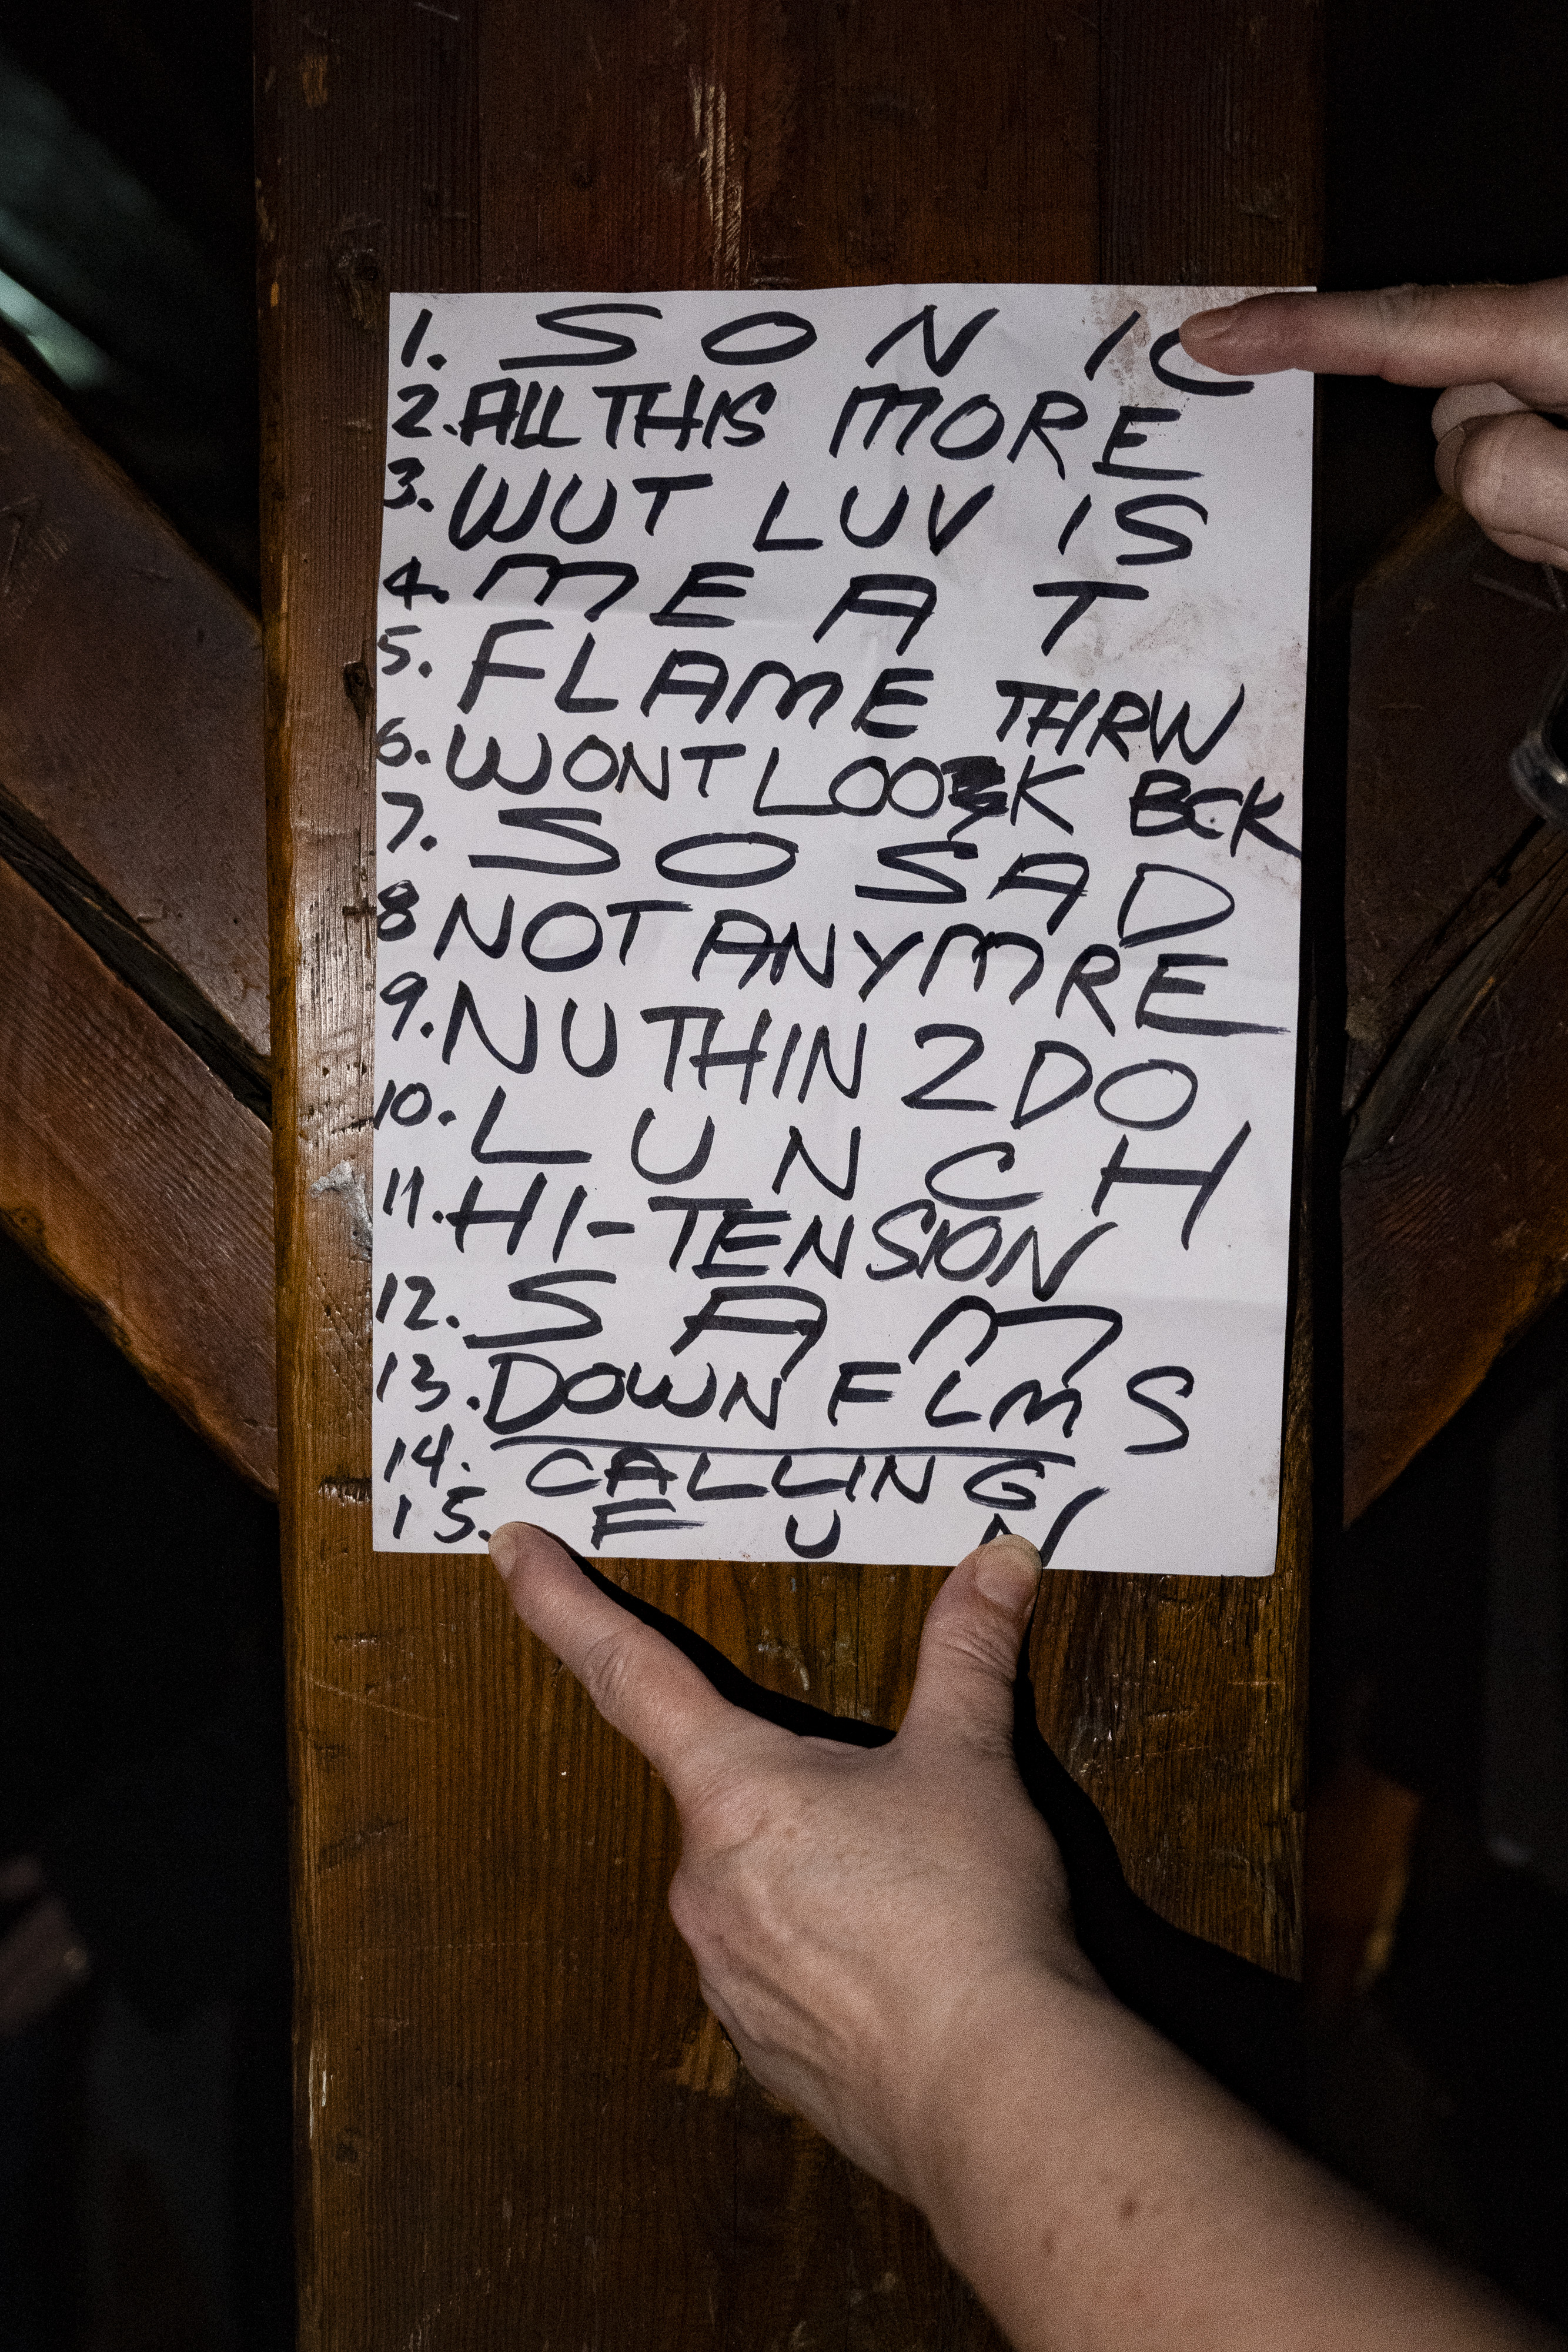 1. SONIC
2. ALL THIS MORE
3. WUT LUV IS
4. MEAT
5. FLAME THRW
6. WONT LOOK BCK
7. SO SAD
8 NOT ANYMRE
9. NUTHIN 2 DO
10. LUNCH
11. HI-TENSION
12. SAM
13. DOWN FLMS
14. CALLING
15. FUN